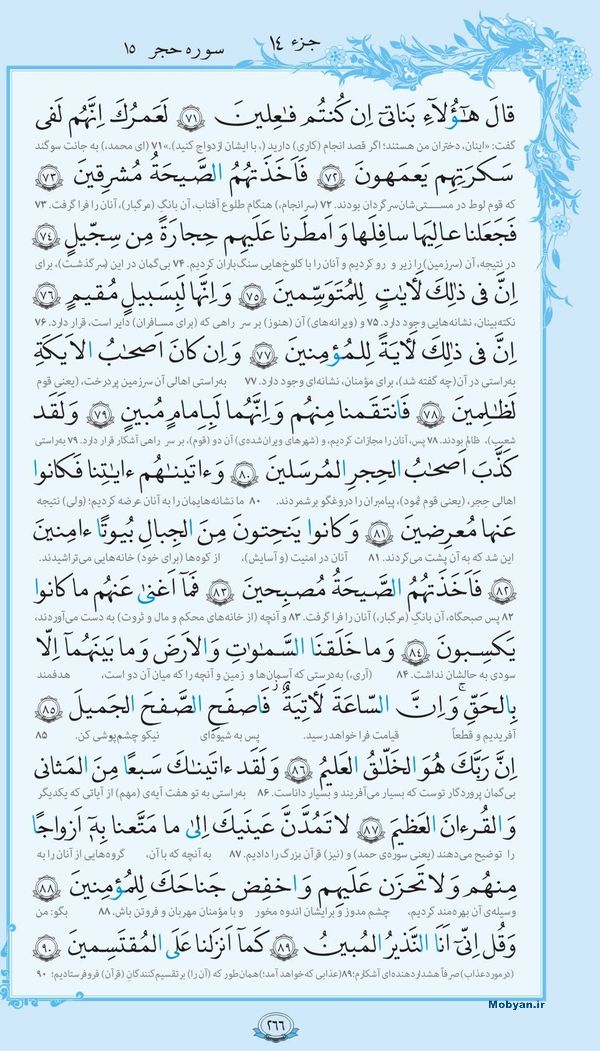 جزء ۱۴ سوره حجر ۱۵
قالَ هٰٓؤُلآءِ بَناتىٓ اِن كُنتُم فـٰعِلينَ ﴿۷۱﴾ لَعَمرُكَ اِنَّهُم لَفى
گفت: «اینان، دختران من هستند؛ اگر قصد انجام (کاری) دارید (، با ایشان ازدواج کنید).»۷۱ (ای محمد،) به جانت سوگند
سَكرَتِهِم يَعمَهونَ ﴿۷۲﴾ فَاَخَذَتهُمُ الصَّيحَةُ مُشرِقينَ ﴿۷۳﴾
که قوم لوط در مستی‌شان سرگردان بودند. ۷۲ (سرانجام،) هنگام طلوع آفتاب، آن بانگِ (مرگبار)، آنان را فرا گرفت. ۷۳
فَجَعَلنا عالِيَها سافِلَها وَ اَمطَرنا عَلَيهِم حِجارَةً مِن سِجّيلٍ ﴿۷۴﴾
در نتیجه، آن (سرزمین) را زیر و رو کردیم و آنان را با کلوخ‌هایی سنگ‌باران کردیم. ۷۴ بی‌گمان در این (سرگذشت)، برای
اِنَّ فى ذٰلِكَ لَأٓياتٍ لِلمُتَوَسِّمينَ ﴿۷۵﴾ وَ اِنَّها لَبِسَبيلٍ مُقيمٍ ﴿۷۶﴾
نکته‌بینان، نشانه‌هایی وجود دارد. ۷۵ و (ویرانه‌های) آن (هنوز) بر سر راهی که (برای مسافران) دایر است، قرار دارد. ۷۶
اِنَّ فى ذٰلِكَ لَأٓيَةً لِلمُؤمِنينَ ﴿۷۷﴾ وَ اِن كانَ اَصحـٰبُ الاَيكَةِ
به‌راستی در آن (چه گفته شد)، برای مؤمنان، نشانه‌ای وجود دارد. ۷۷ به‌راستی اهالی آن سرزمین پردرخت، (یعنی قوم
لَظـٰلِمينَ ﴿۷۸﴾ فَانتَقَمنا مِنهُم وَ اِنَّهُما لَبِاِمامٍ مُبينٍ ﴿۷۹﴾ وَ لَقَد
شعیب)، ظالم بودند. ۷۸ پس، آنان را مجازات کردیم، و (شهرهای ویران‌شده‌ی) آن دو (قوم)، بر سر راهی آشکار قرار دارد. ۷۹ به‌راستی
كَذَّبَ اَصحـٰبُ الحِجرِ المُرسَلينَ ﴿۸۰﴾ وَ ءاتَينـٰهُم ءايـٰتِنا فَكانوا
اهالی حِجر، (یعنی قوم ثمود)، پیامبران را دروغگو برشمردند. ۸۰ ما نشانه‌هایمان را به آنان عرضه کردیم؛ (ولی) نتیجه
عَنها مُعرِضينَ ﴿۸۱﴾ وَ كانوا يَنحِتونَ مِنَ الجِبالِ بُيوتًا ءامِنينَ
این شد که به آن پشت می‌کردند. ۸۱ آنان در امنیت (و آسایش)، از کوه‌ها (برای خود) خانه‌هایی می‌تراشیدند.
﴿۸۲﴾ فَاَخَذَتهُمُ الصَّيحَةُ مُصبِحينَ ﴿۸۳﴾ فَمآ اَغنىٰ عَنهُم ما كانوا
۸۲ پس صبحگاه، آن بانگِ (مرگبار)، آنان را فرا گرفت. ۸۳ و آنچه (از خانه‌های محکم و مال و ثروت) به دست می‌آوردند،
يَكسِبونَ ﴿۸۴﴾ وَ ما خَلَقنَا السَّمـٰوٰتِ وَ الاَرضَ وَ ما بَينَهُمآ اِلّا
سودی به حالشان نداشت. ۸۴ (آری،) به‌درستی که آسمان‌ها و زمین و آنچه را که میان آن دو است، هدفمند
بِالحَقِّ ۗ وَ اِنَّ السّاعَةَ لَأٓتِيَةٌ ۖ فَاصفَحِ الصَّفحَ الجَميلَ ﴿۸۵﴾
آفریدیم و قطعاً قیامت فرا خواهد رسید. پس به شیوه‌ای نیکو چشم‌پوشی کن. ۸۵
اِنَّ رَبَّكَ هُوَ الخَلّـٰقُ العَليمُ ﴿۸۶﴾ وَ لَقَد ءاتَينـٰكَ سَبعًا مِنَ المَثانى
بی‌گمان پروردگار توست که بسیار می‌آفریند و بسیار داناست. ۸۶ به‌راستی به تو هفت آیه‌ی (مهم) از آیاتی که یکدیگر
وَ القُرءانَ العَظيمَ ﴿۸۷﴾ لا تَمُدَّنَّ عَينَيكَ اِلىٰ ما مَتَّعنا بِهٖٓ اَزواجًا
را توضیح می‌دهند (یعنی سوره‌ی حمد) و (نیز) قرآن بزرگ را دادیم. ۸۷ به آنچه که با آن، گروه‌هایی از آنان را به
مِنهُم وَ لا تَحزَن عَلَيهِم وَ اخفِض جَناحَكَ لِلمُؤمِنينَ ﴿۸۸﴾
وسیله‌ی آن بهره‌مند کردیم، چشم مدوز و برایشان اندوه مخور و با مؤمنان مهربان و فروتن باش. ۸۸ بگو: من
وَ قُل اِنّىٓ اَنَا النَّذيرُ المُبينُ ﴿۸۹﴾ كَمآ اَنزَلنا عَلَى المُقتَسِمينَ ﴿۹۰﴾
(در مورد عذاب) صرفاً هشداردهنده‌ای آشکارم؛ ۸۹ (عذابی که خواهد آمد؛) همان‌طور که (آن را) بر تقسیم‌کنندگانِ (قرآن) فرو فرستادیم؛ ۹۰
Mobyan.ir
۲۶۶